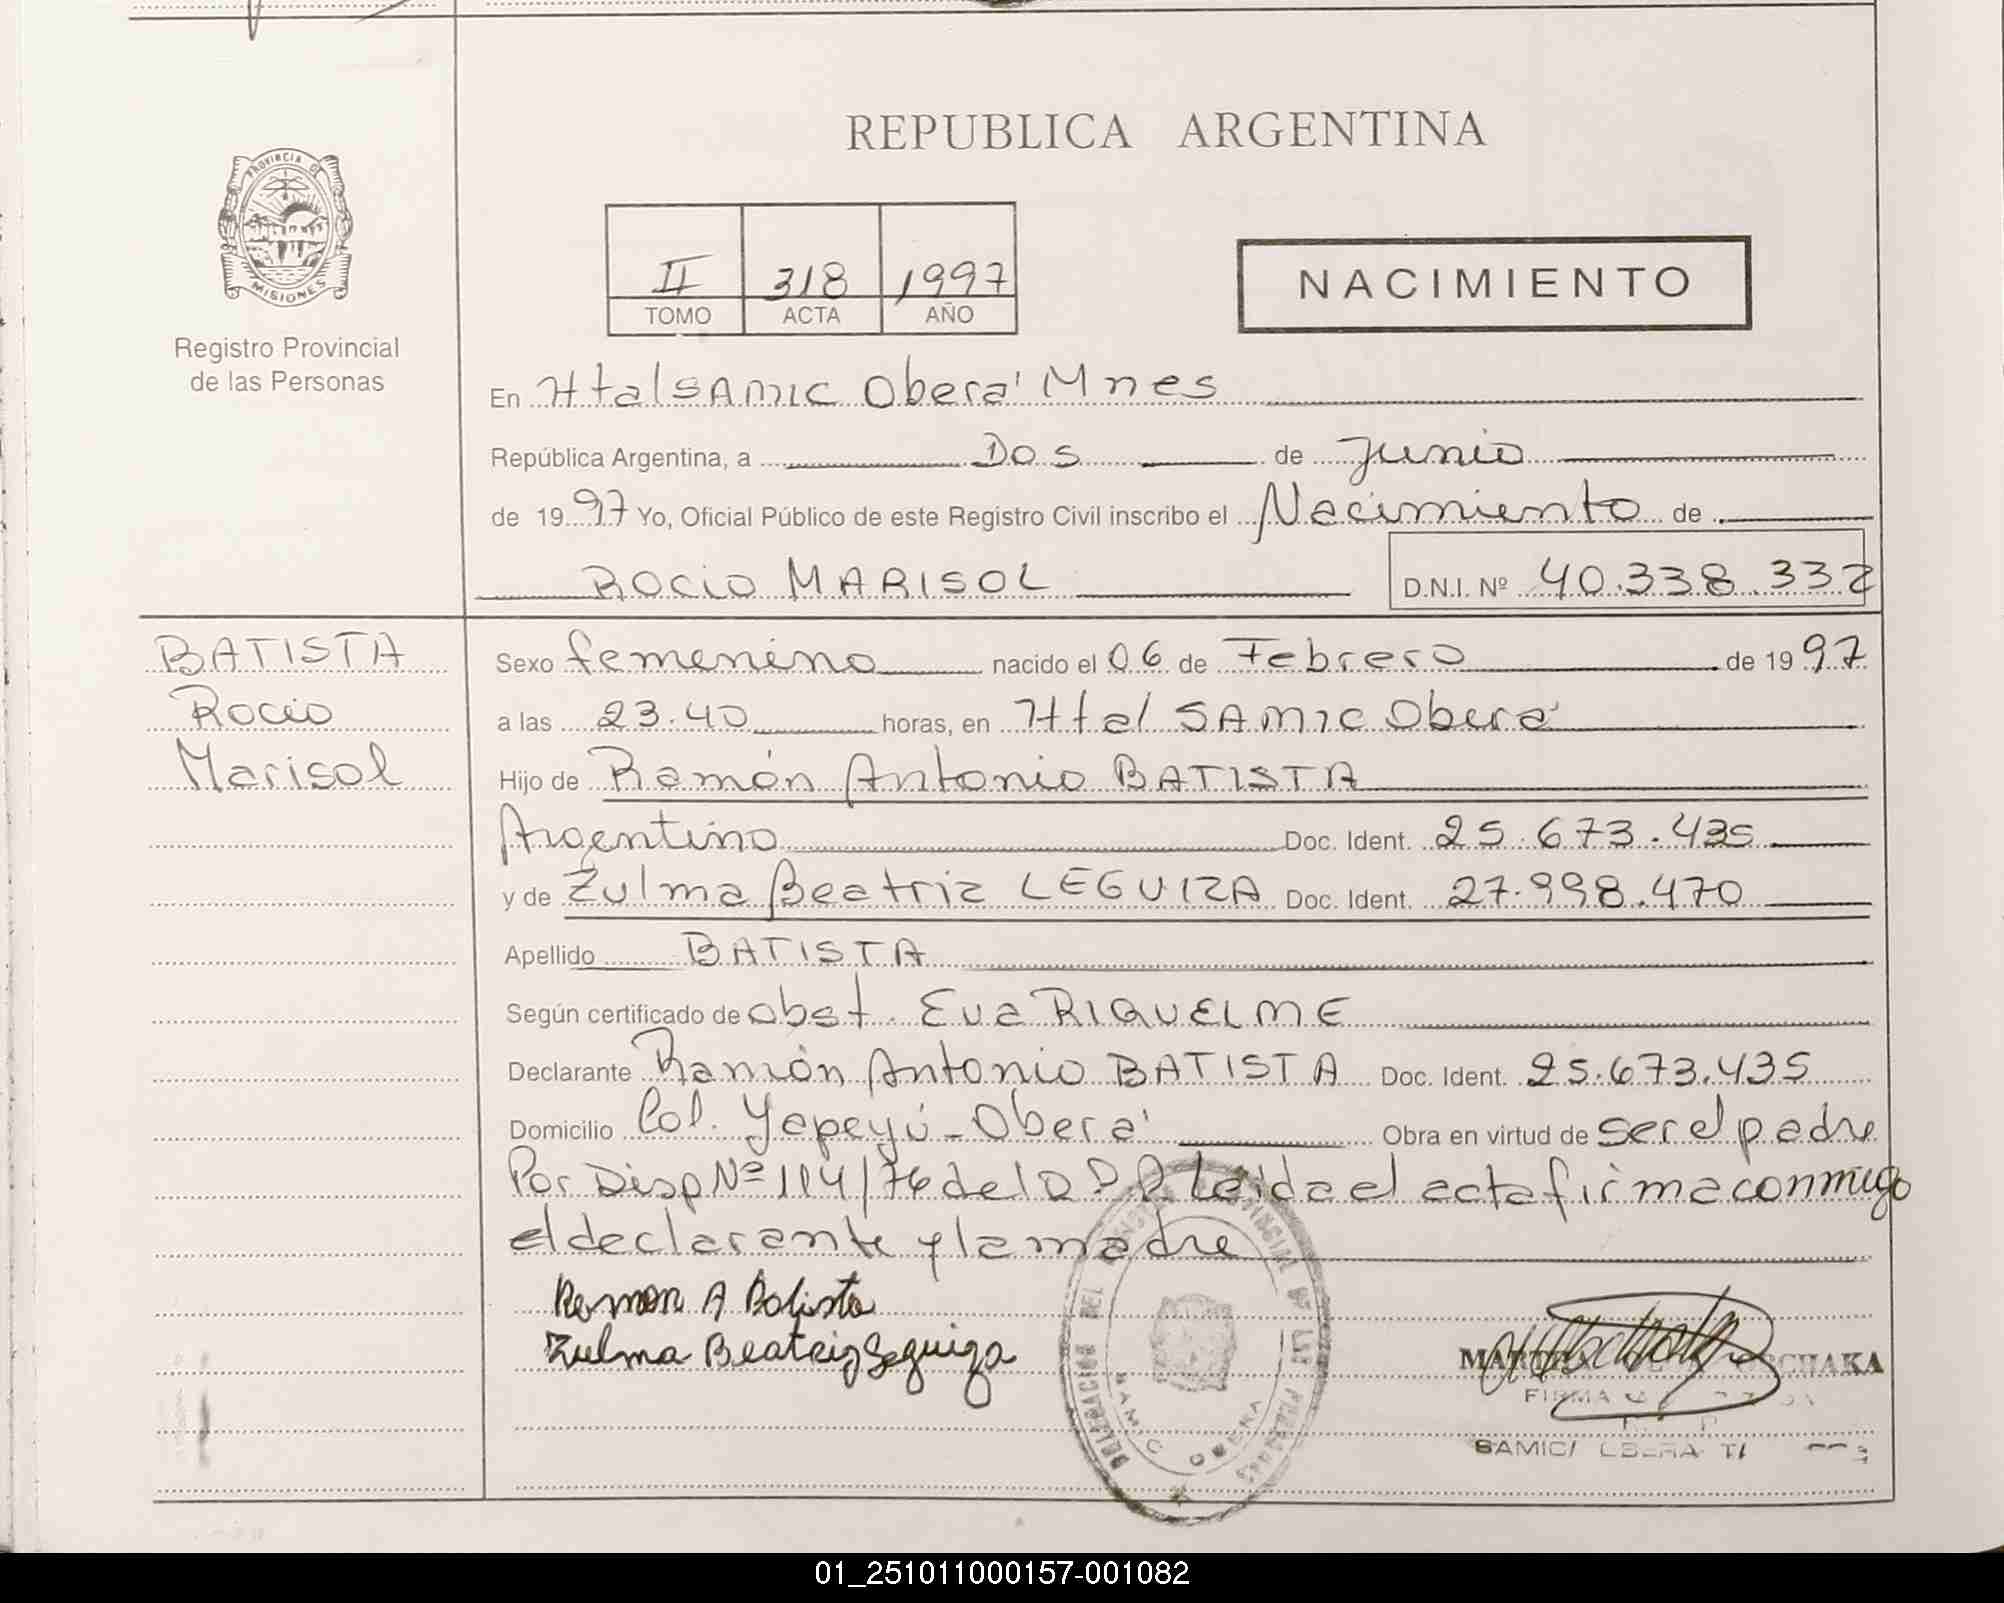 PROVINCIA DE
MISIONES
Registro Provincial
de las Personas
REPUBLICA ARGENTINA
II 318 1997
TOMO ACTA AÑO
NACIMIENTO
En Htal SAMIC Oberá Mnes
República Argentina, a Dos de Junio
de 1997 Yo, Oficial Público de este Registro Civil inscribo el Nacimiento de
ROCIO MARISOL D.N.I. Nº 40.338.332
BATISTA
Rocio
Marisol
Sexo femenino nacido el 06 de Febrero de 1997
a las 23.40 horas, en Htal SAMIC Oberá
Hijo de Ramón Antonio BATISTA
Argentino Doc. Ident. 25.673.435
y de Zulma Beatriz LEGUIZA Doc. Ident. 27.998.470
Apellido BATISTA
Según certificado de obst. Eva RIQUELME
Declarante Ramón Antonio BATISTA Doc. Ident. 25.673.435
Domicilio Col. Yapeyú - Oberá Obra en virtud de ser el padre
Por Disp Nº 114/76 del D.P.R Leida el acta firma conmigo
el declarante y la madre
Ramon A Batista
Zulma Beatriz Leguiza
DELEGACION DEL REGISTRO PROVINCIAL DE LAS PERSONAS
SAMIC OBERA
FIRMA
SAMIC OBERA
01_251011000157-001082